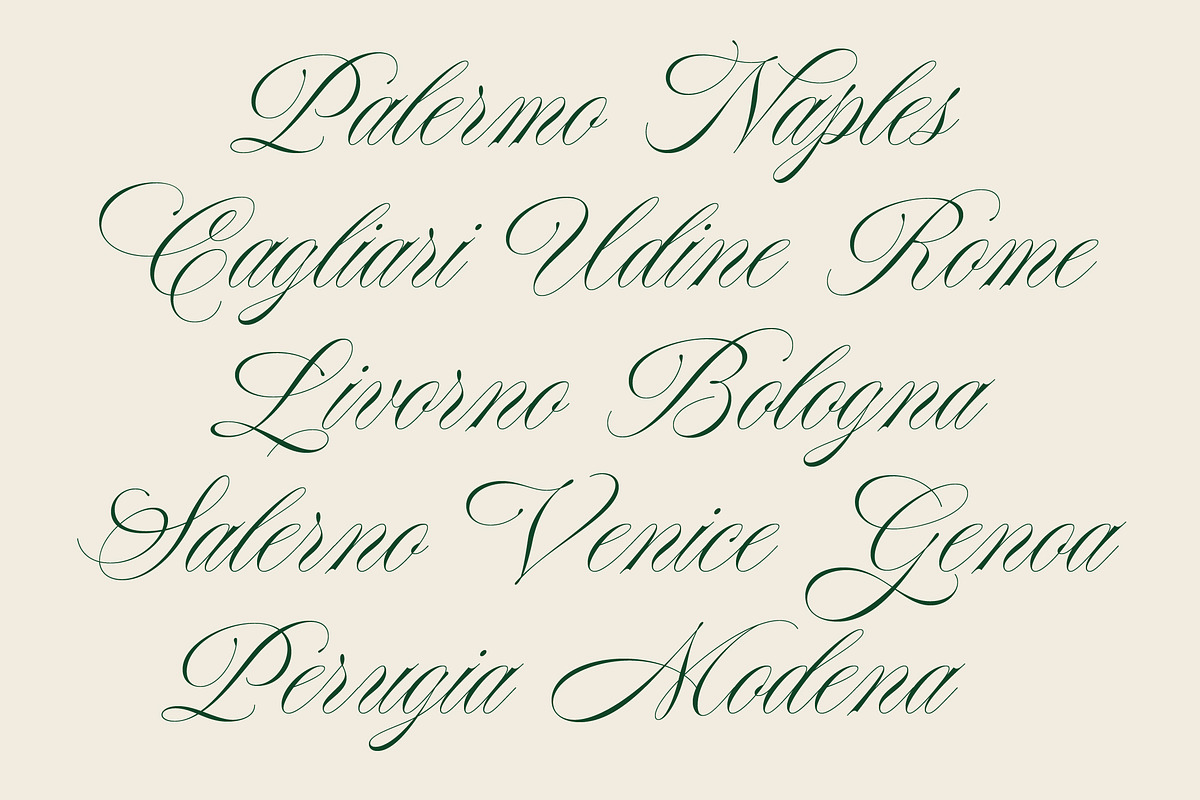 Palermo Naples
Cagliari Udine Rome
Livorno Bologna
Salerno Venice Genoa
Perugia Modena